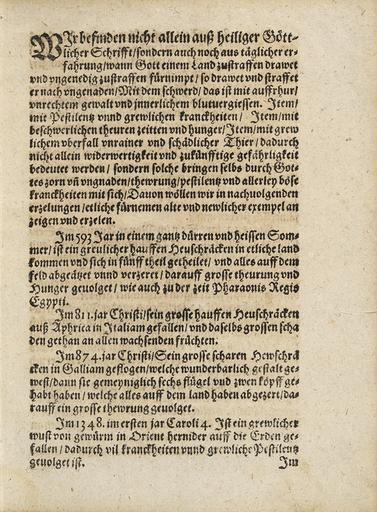 WJr befinden nicht allein auß heiliger Gött-
licher Schrifft/sondern auch noch aus täglicher er-
fahrung/wann Gott einem Land zustraffen drawet
vnd vngenedig zustraffen fürnimpt/ so drawet vnd straffet
er nach vngenaden/Mit dem schwerd/das ist mit auffrhur/
vnrechtem gewalt vnd jnnerlichem blutuergiessen. Jtem/
mit Pestilentz vnnd grewlichen kranckheiten/ Jtem/mit
beschwerlichen theuren zeitten vnd hunger/Jtem/mit grew
lichem vberfall vnrainer vnd schädlicher Thier/dadurch
nicht allein widerwertigkeit vnd zukünfftige gefährligkeit
bedeutet werden/ sondern solche bringen selbs durch Got-
tes zorn vñ vngnaden/thewrung/pestilentz vnd allerley böse
kranckheiten mit sich/Dauon wöllen wir in nachuolgenden
erzelungen/etliche fürnemen alte vnd newlicher exempel an
zeigen vnd erzelen.
Jm 593 Jar in einem gantz dürren vnd heissen Som-
mer/ist ein greulicher hauffen Heuschräcken in etliche land
kommen vnd sich in fünff theil getheilet/ vnd alles auff dem
feld abgeätzet vnnd verzeret/ darauff grosse theurung vnd
Hunger geuolget/ wie auch zu der zeit Pharaonis Regis
Egypti.
Jm 811.jar Christi/sein grosse hauffen Heuschräcken
auß Aphrica in Jtaliam gefallen/vnd daselbs grossen scha
den gethan an allen wachsenden früchten.
Jm 874.jar Christi/Sein grosse scharen Hewschrä
cken in Galliam geflogen/welche wunderbarlich gestalt ge-
west/dann sie gemeyniglich sechs flügel vnd zwen köpff ge-
habt haben/ welche alles auff dem land haben abgezert/da-
rauff ein grosse thewrung geuolget.
Jm 1348. im ersten jar Caroli 4. Jst ein grewlicher
wust von gewürm in Orient hernider auff die Erden ge-
fallen/ dadurch vil kranckheiten vnnd grewliche Pestilentz
geuolget ist.
Jm